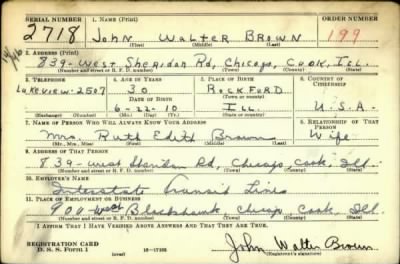 SERIAL NUMBER 1. NAME (Print) ORDER NUMBER
2718 JOHN WALTER BROWN 199
(First) (Middle) (Last)
2. ADDRESS (Print)
839-WEST SHERIDAN RD, CHICAGO, COOK, ILL.
(Number and street or R. F. D. number) (Town) (County) (State)
3. TELEPHONE 4. AGE IN YEARS 5. PLACE OF BIRTH 6. COUNTRY OF CITIZENSHIP
LAKEVIEW-2507 30 ROCKFORD
DATE OF BIRTH (Town or county)
6-22-10 ILL. U.S.A.
(Exchange) (Number) (Mo.) (Day) (Yr.) (State or country)
7. NAME OF PERSON WHO WILL ALWAYS KNOW YOUR ADDRESS 8. RELATIONSHIP OF THAT PERSON
Mrs. Ruth Edith Brown Wife
(Mr., Mrs., Miss) (First) (Middle) (Last)
9. ADDRESS OF THAT PERSON
839-West Sheridan Rd, Chicago, Cook, Ill.
(Number and street or R. F. D. number) (Town) (County) (State)
10. EMPLOYER'S NAME
Interstate Transit Lines
11. PLACE OF EMPLOYMENT OR BUSINESS
901-West Blackhawk, Chicago, Cook, Ill.
(Number and street or R. F. D. number) (Town) (County) (State)
I AFFIRM THAT I HAVE VERIFIED ABOVE ANSWERS AND THAT THEY ARE TRUE.
REGISTRATION CARD
D. S. S. Form 1 (over) 16-17105 John Walter Brown
(Registrant's signature)